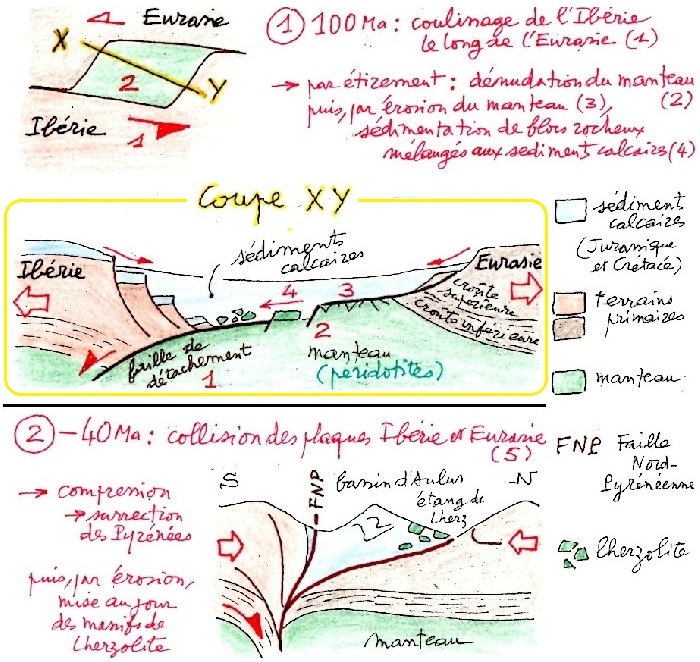 Eurasie
X
2
Y
Ibérie
1
① 100 Ma : coulinage de l'Ibérie
le long de l'Eurasie (1)
→ par étirement : dénudation du manteau (2)
puis, par érosion du manteau (3),
sédimentation de blocs rocheux
mélangés aux sédiment calcaires (4)
Coupe XY
Ibérie
sédiments
calcaires
Eurasie
croûte
supérieure
croûte inférieure
4
3
2
faille de
détachement
1
manteau
(péridotites)
sédiment
calcaires
(Jurassique
et Crétacé)
terrains
primaires
manteau
② -40 Ma : collision des plaques Ibérie et Eurasie
(5)
→ compression
→ surrection
des Pyrénées
puis, par érosion,
mise au jour
des massifs de
Lherzolite
S
FNP
bassin d'Aulus
étang de
Lherz
N
manteau
FNP Faille
Nord-
Pyrénéenne
lherzolite